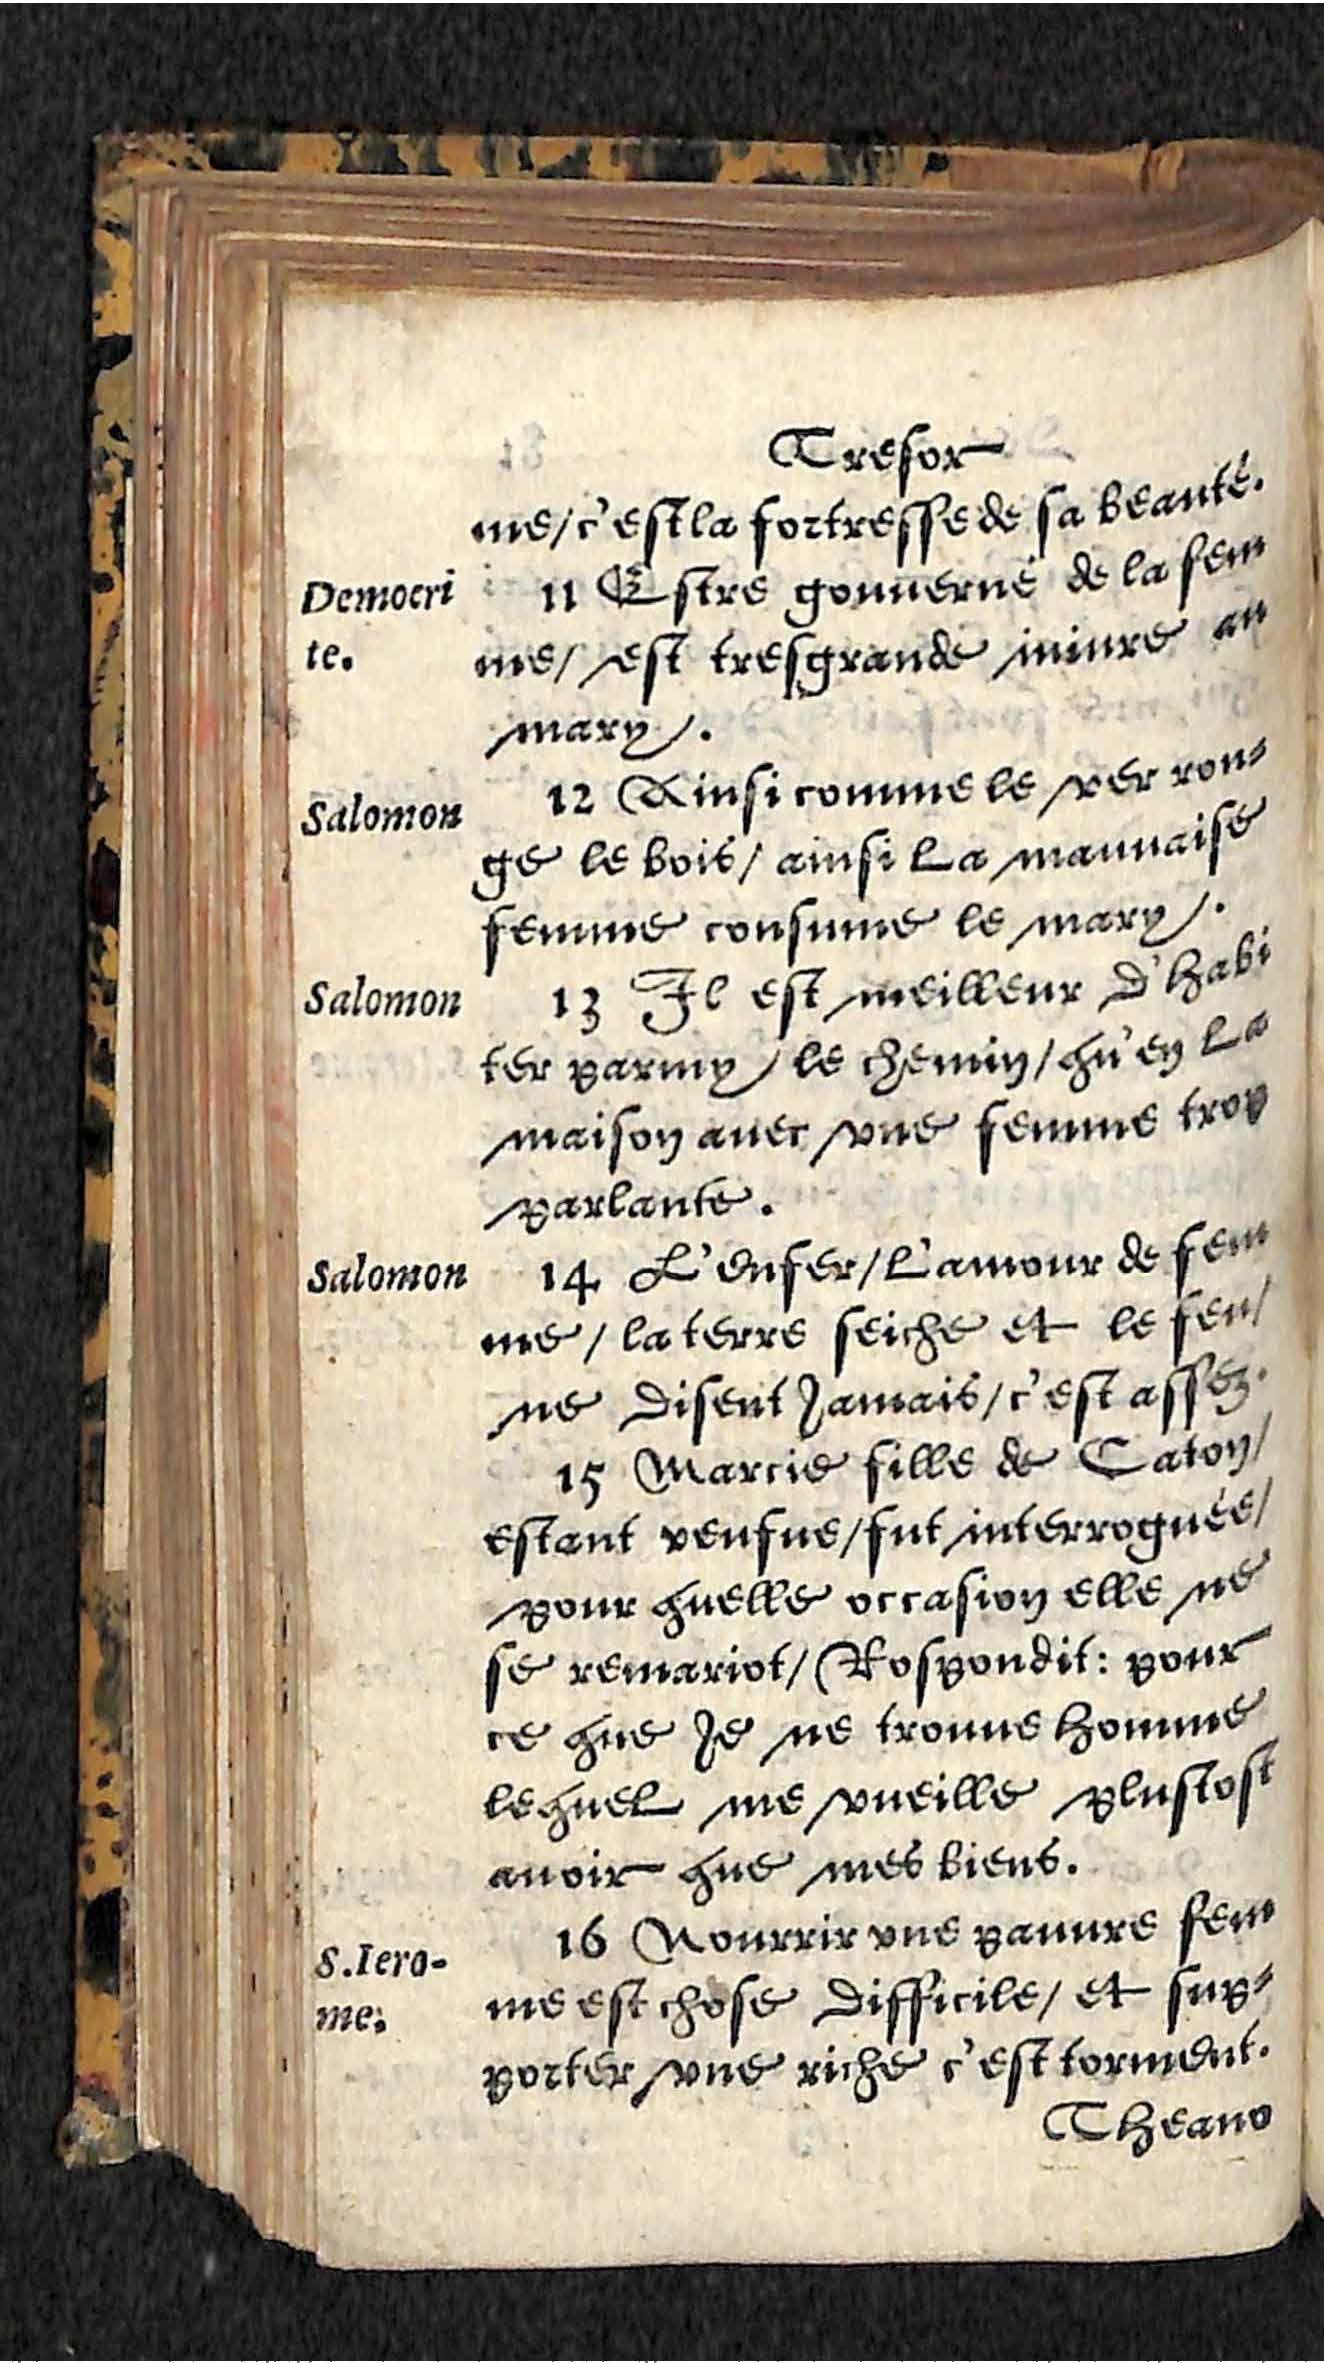 Tresor
me/c'est la fortresse de sa beauté.
Democri
te.
11 Estre gouuerné de la fem
me/ est tresgrande iniure au
mary.
Salomon
12 Ainsi comme le ver ron-
ge le bois/ ainsi la mauuaise
femme consume le mary.
Salomon
13 Il est meilleur d'habi
ter parmy le chemin/qu'en la
maison auec vne femme trop
parlante.
Salomon
14 L'enfer/l'amour de fem
me/la terre seiche et le feu/
ne disent Jamais/c'est assez.
15 Marcie fille de Caton/
estant veufue/fut interroguée/
pour quelle occasion elle ne
se remariot/Rospondit: pour
ce que Je ne trouue homme
lequel me vueille plustost
auoir que mes biens.
S.Iero-
me:
16 Nourrir vne pauure fem
me est chose difficile/ et sup-
porter vne riche c'est torment.
Theano